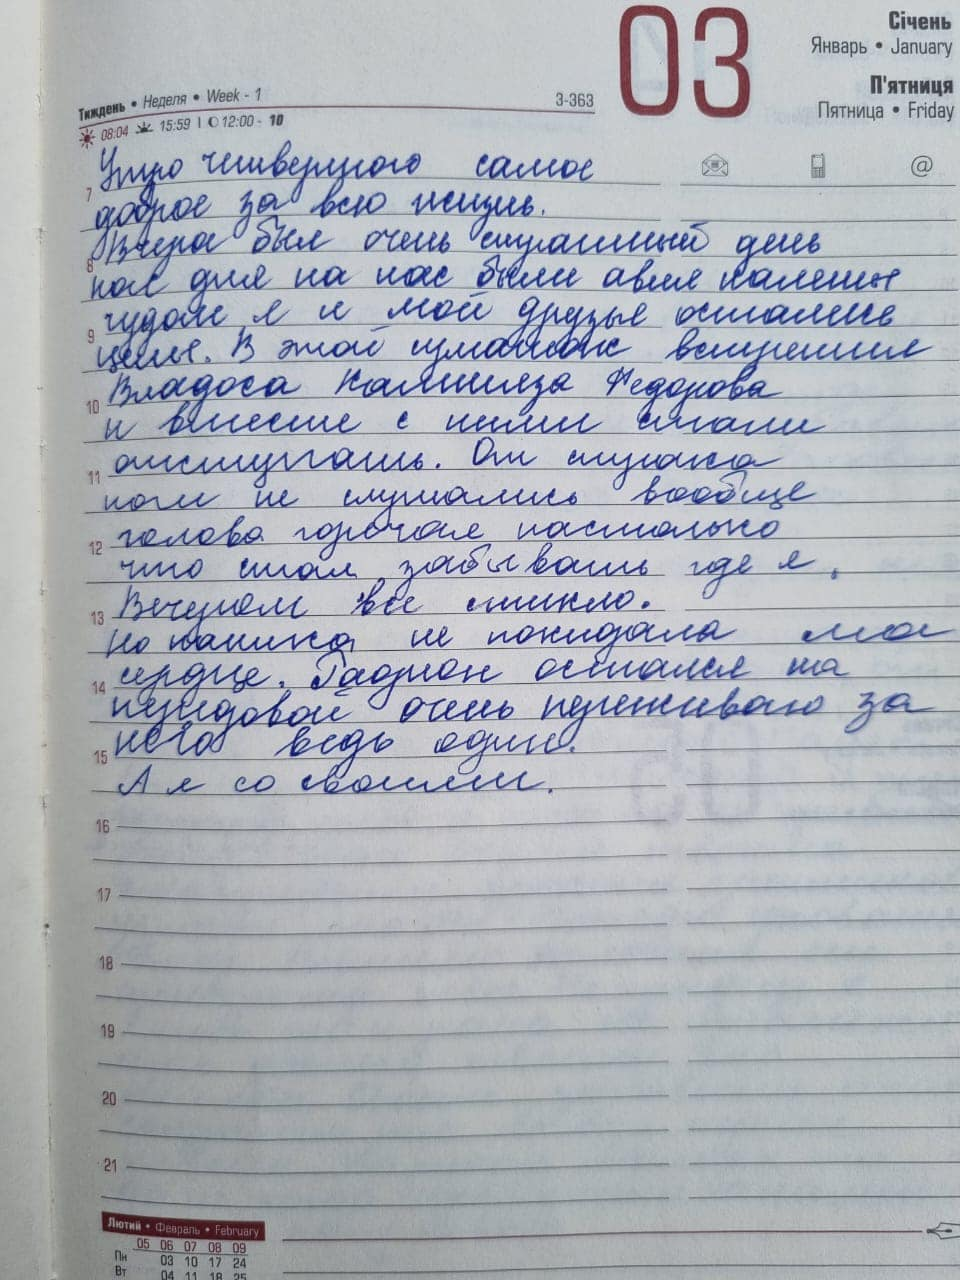 03
Січень
Январь • January
П'ятниця
Пятница • Friday
Тиждень • Неделя • Week - 1
3-363
08:04 15:59 12:00 - 10
Утро четвертого самое
7
доброе за всю жизнь.
Вчера был очень страшный день
8
пол дня на нас были авиа налеты
чудом я и мои друзья остались
9
целы. В этой суматохе встретил
Владоса Камиля Федорова
10
и вместе с ними стали
отступать. От страха
11
ноги не слушались вообще
голова горячая настолько
12
что стал забывать где я.
Вечером все стихло.
13
Но паника не покидала мое
сердце. Гадион остался на
14
передовой очень переживаю за
него ведь один.
15
А я со своими.
16
17
18
19
20
21
Лютий • Февраль • February
05 06 07 08 09
Пн 03 10 17 24
Вт 04 11 18 25